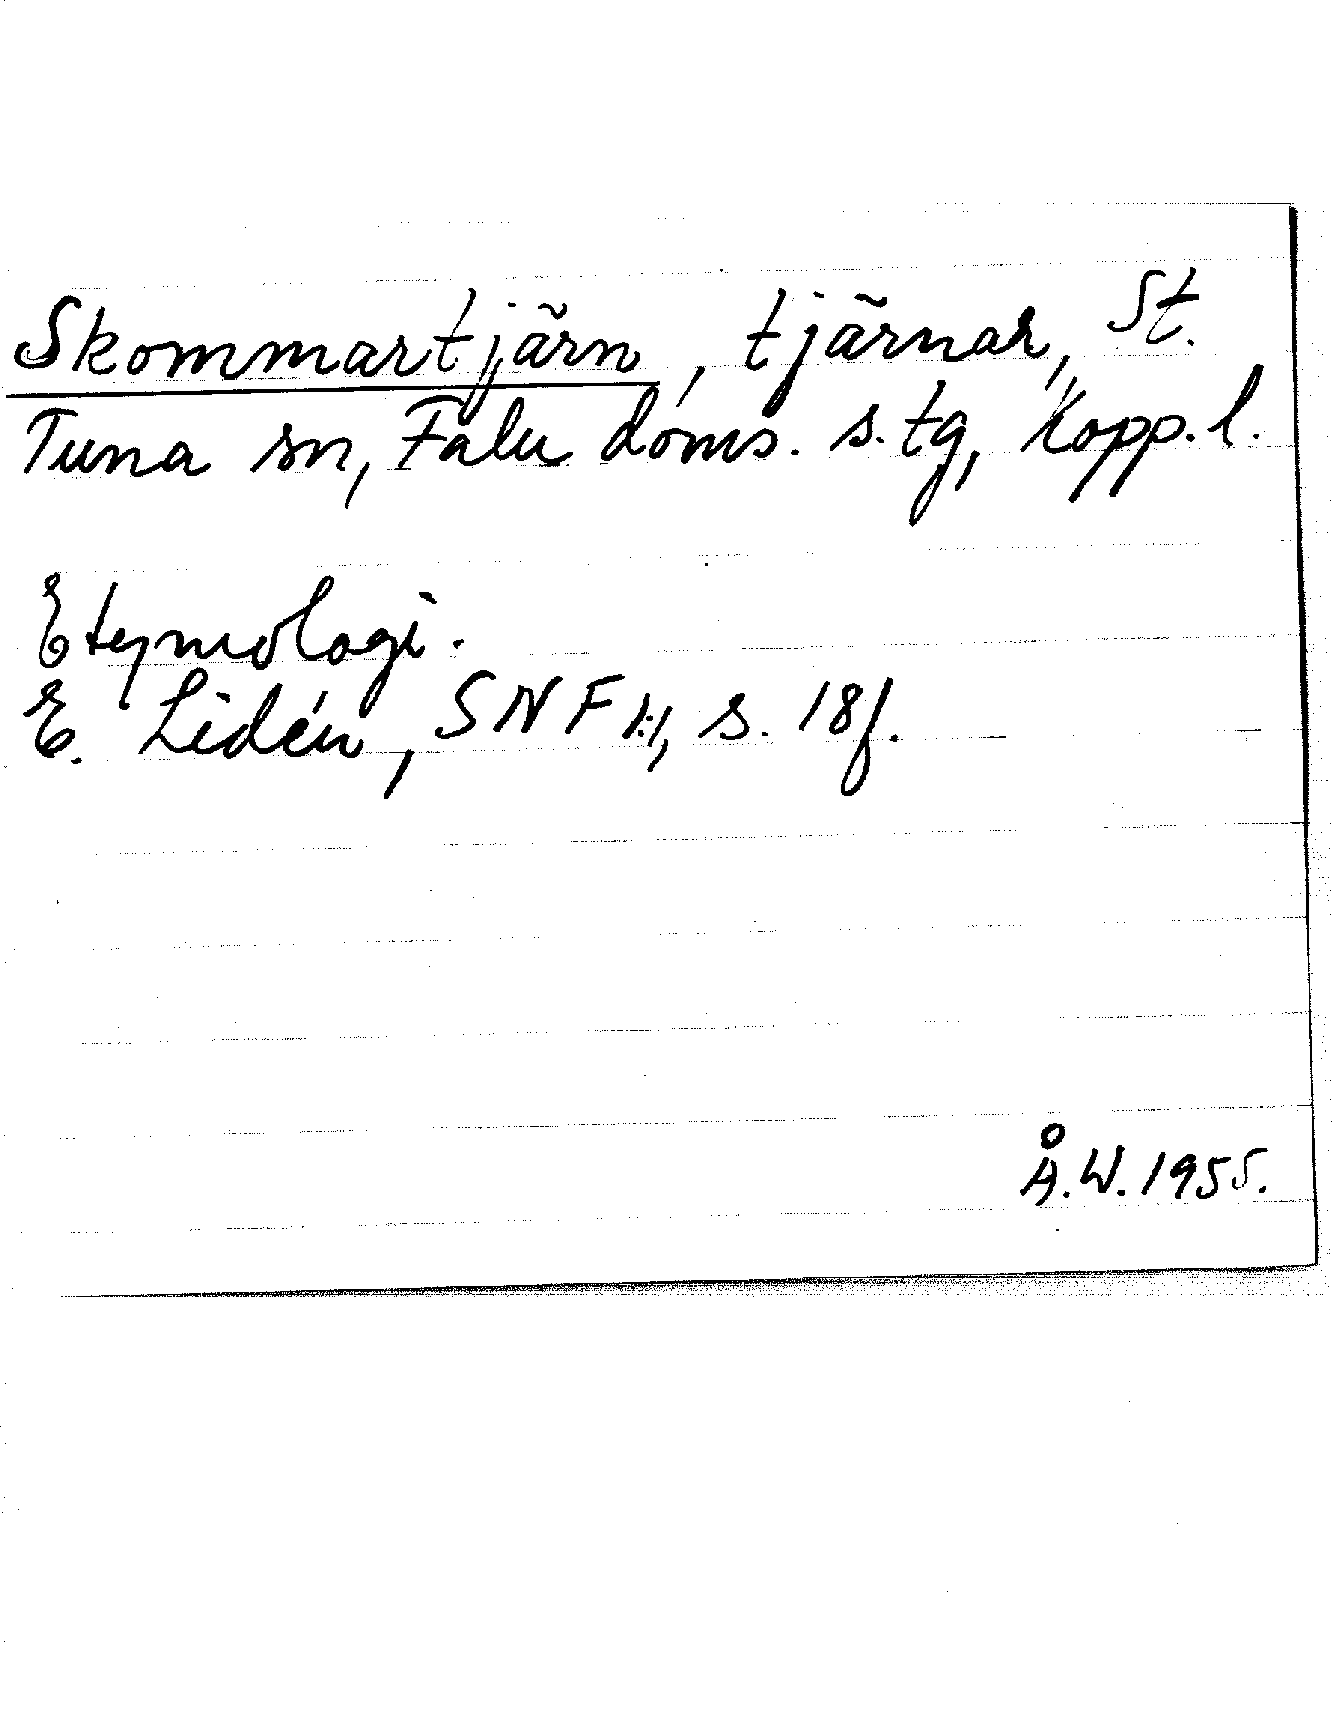 Skommartjärn, tjärnar, St.
Tuna sn, Falu doms. s. tg, Kopp. l.
Etymologi.
E. Lidén, SNF 1:1, s. 18f.
Å.W. 1955.